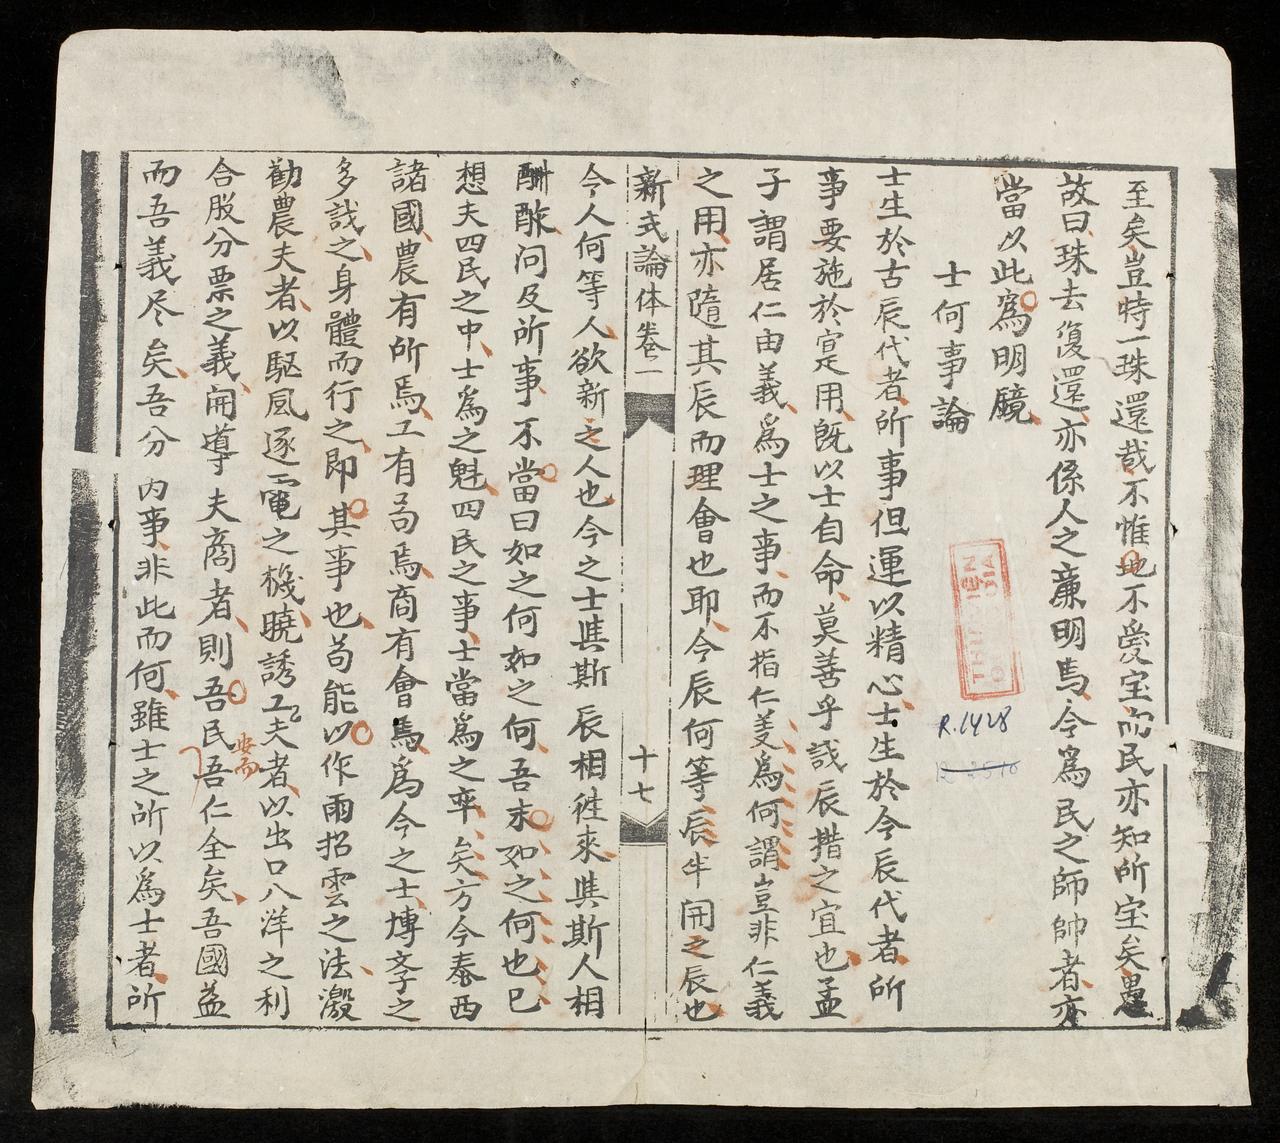 至矣豈特一珠還哉不惟地不愛宝而民亦知所宝矣愚
故曰珠去復還亦係人之廉明焉今為民之師帥者亦
當以此爲明鏡
士何事論
士生於古辰代者所事但運以精心士生於今辰代者所
事要施於寔用既以士自命莫善乎識辰措之宜也孟
子謂居仁由義爲士之事而不指仁義為何謂豈非仁義
之用亦隨其辰而理會也耶今辰何等辰半開之辰也
新式論体卷一
十七
今人何等人欲新之人也今之士與斯辰相徃來與斯人相
酬酢问及所事不當曰如之何如之何吾末如之何也已
想夫四民之中士爲之魁四民之事士當爲之率矣方今泰西
諸國農有所焉工有局焉商有會焉爲今之士博文之
多識之身體而行之即其事也苟能以作雨招雲之法激
勸農夫者以駆風逐電之機曉誘工夫者以出口八洋之利
合股分票之義開導夫商者則吾民吾仁全矣吾國益
而吾義尽矣吾分内事非此而何雖士之所以爲士者所
R.1428